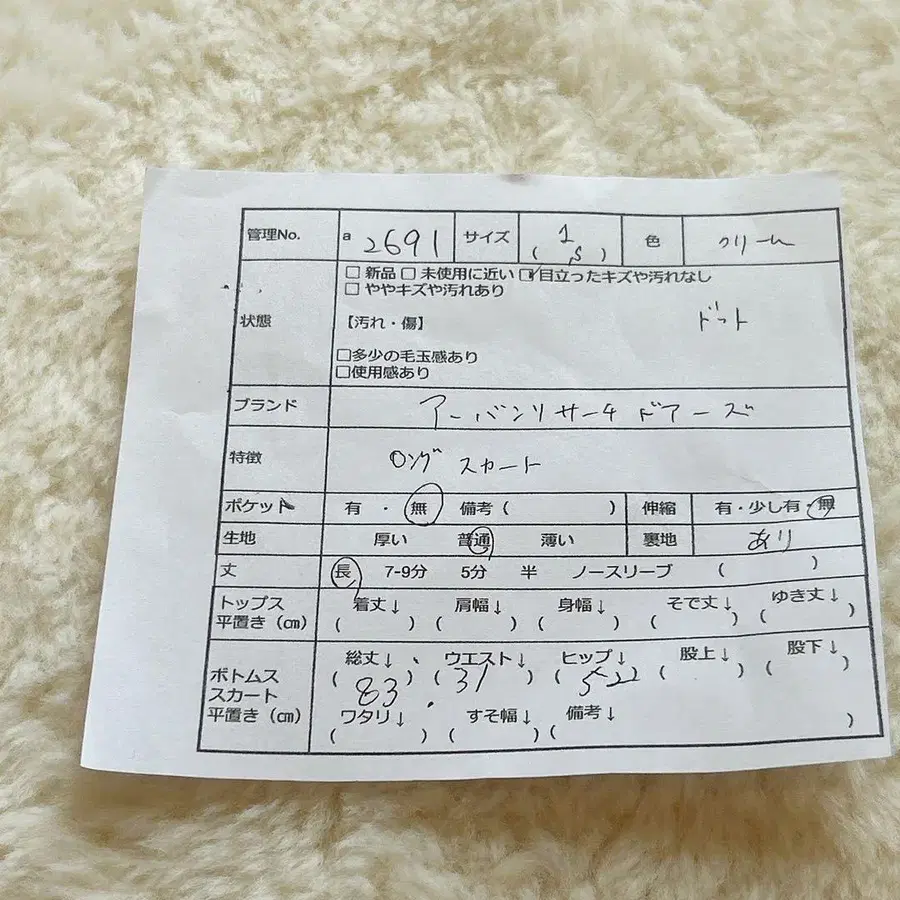 管理No. a 2691 サイズ 1 ( S ) 色 クリーム
状態 □ 新品 □ 未使用に近い ☑目立ったキズや汚れなし
□ ややキズや汚れあり
【汚れ・傷】 ドット
□多少の毛玉感あり
□使用感あり
ブランド アーバンリサーチ ドアーズ
特徴 ロング スカート
ポケット 有 ・ 無 備考 ( ) 伸縮 有・少し有・無
生地 厚い 普通 薄い 裏地 あり
丈 長 7-9分 5分 半 ノースリーブ ( )
トップス 平置き (㎝) 着丈↓ ( ) 肩幅↓ ( ) 身幅↓ ( ) そで丈↓ ( ) ゆき丈↓ ( )
ボトムス スカート 平置き (㎝) 総丈↓ ( 83 ) ウエスト↓ ( 31 ) ヒップ↓ ( ) 股上↓ ( ) 股下↓ ( )
ワタリ↓ ( ) すそ幅↓ ( ) 備考↓ ( )